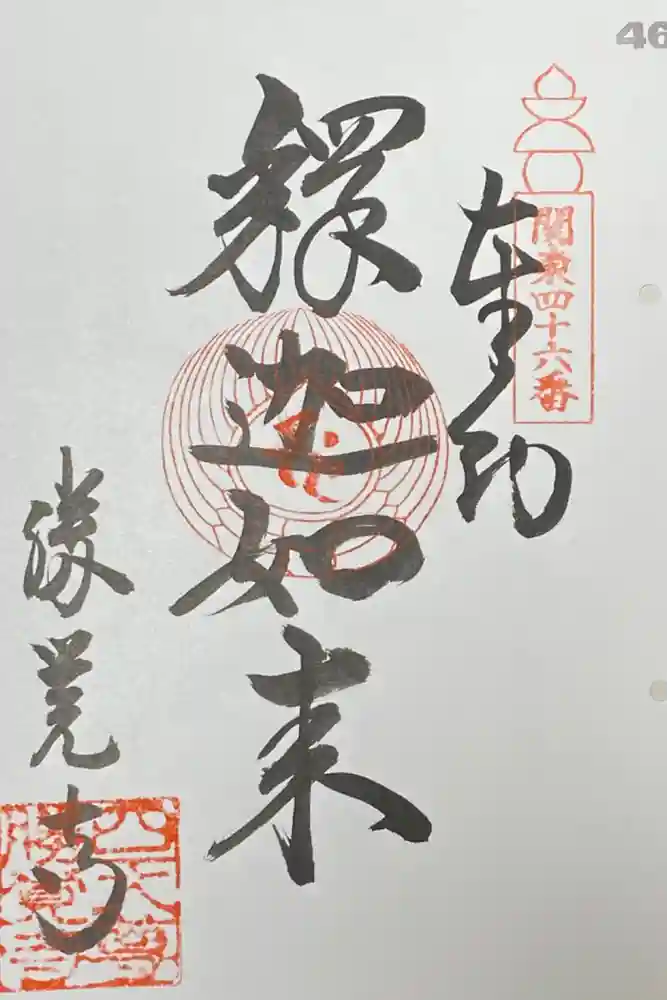 46
関東四十六番
奉納
釋迦如来
勝覚寺